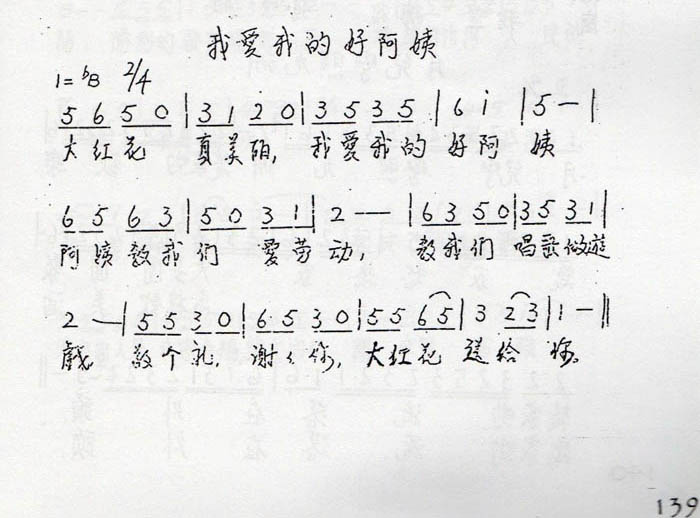 我愛我的好阿姨
1=ᵇB 2/4
5 6 5 0 | 3 1 2 0 | 3 5 3 5 | 6 i | 5 — |
大红花 真美丽, 我愛我的 好阿 姨
6 5 6 3 | 5 0 3 1 | 2 — — | 6 3 5 0 | 3 5 3 1 |
阿姨教我 们 愛劳 动, 教我们 唱歌做遊
2 — | 5 5 3 0 | 6 5 3 0 | 5 5 6 5 | 3 2 3 | 1 — ‖
戲. 敬个礼, 谢々你, 大红花 送给 你。
139